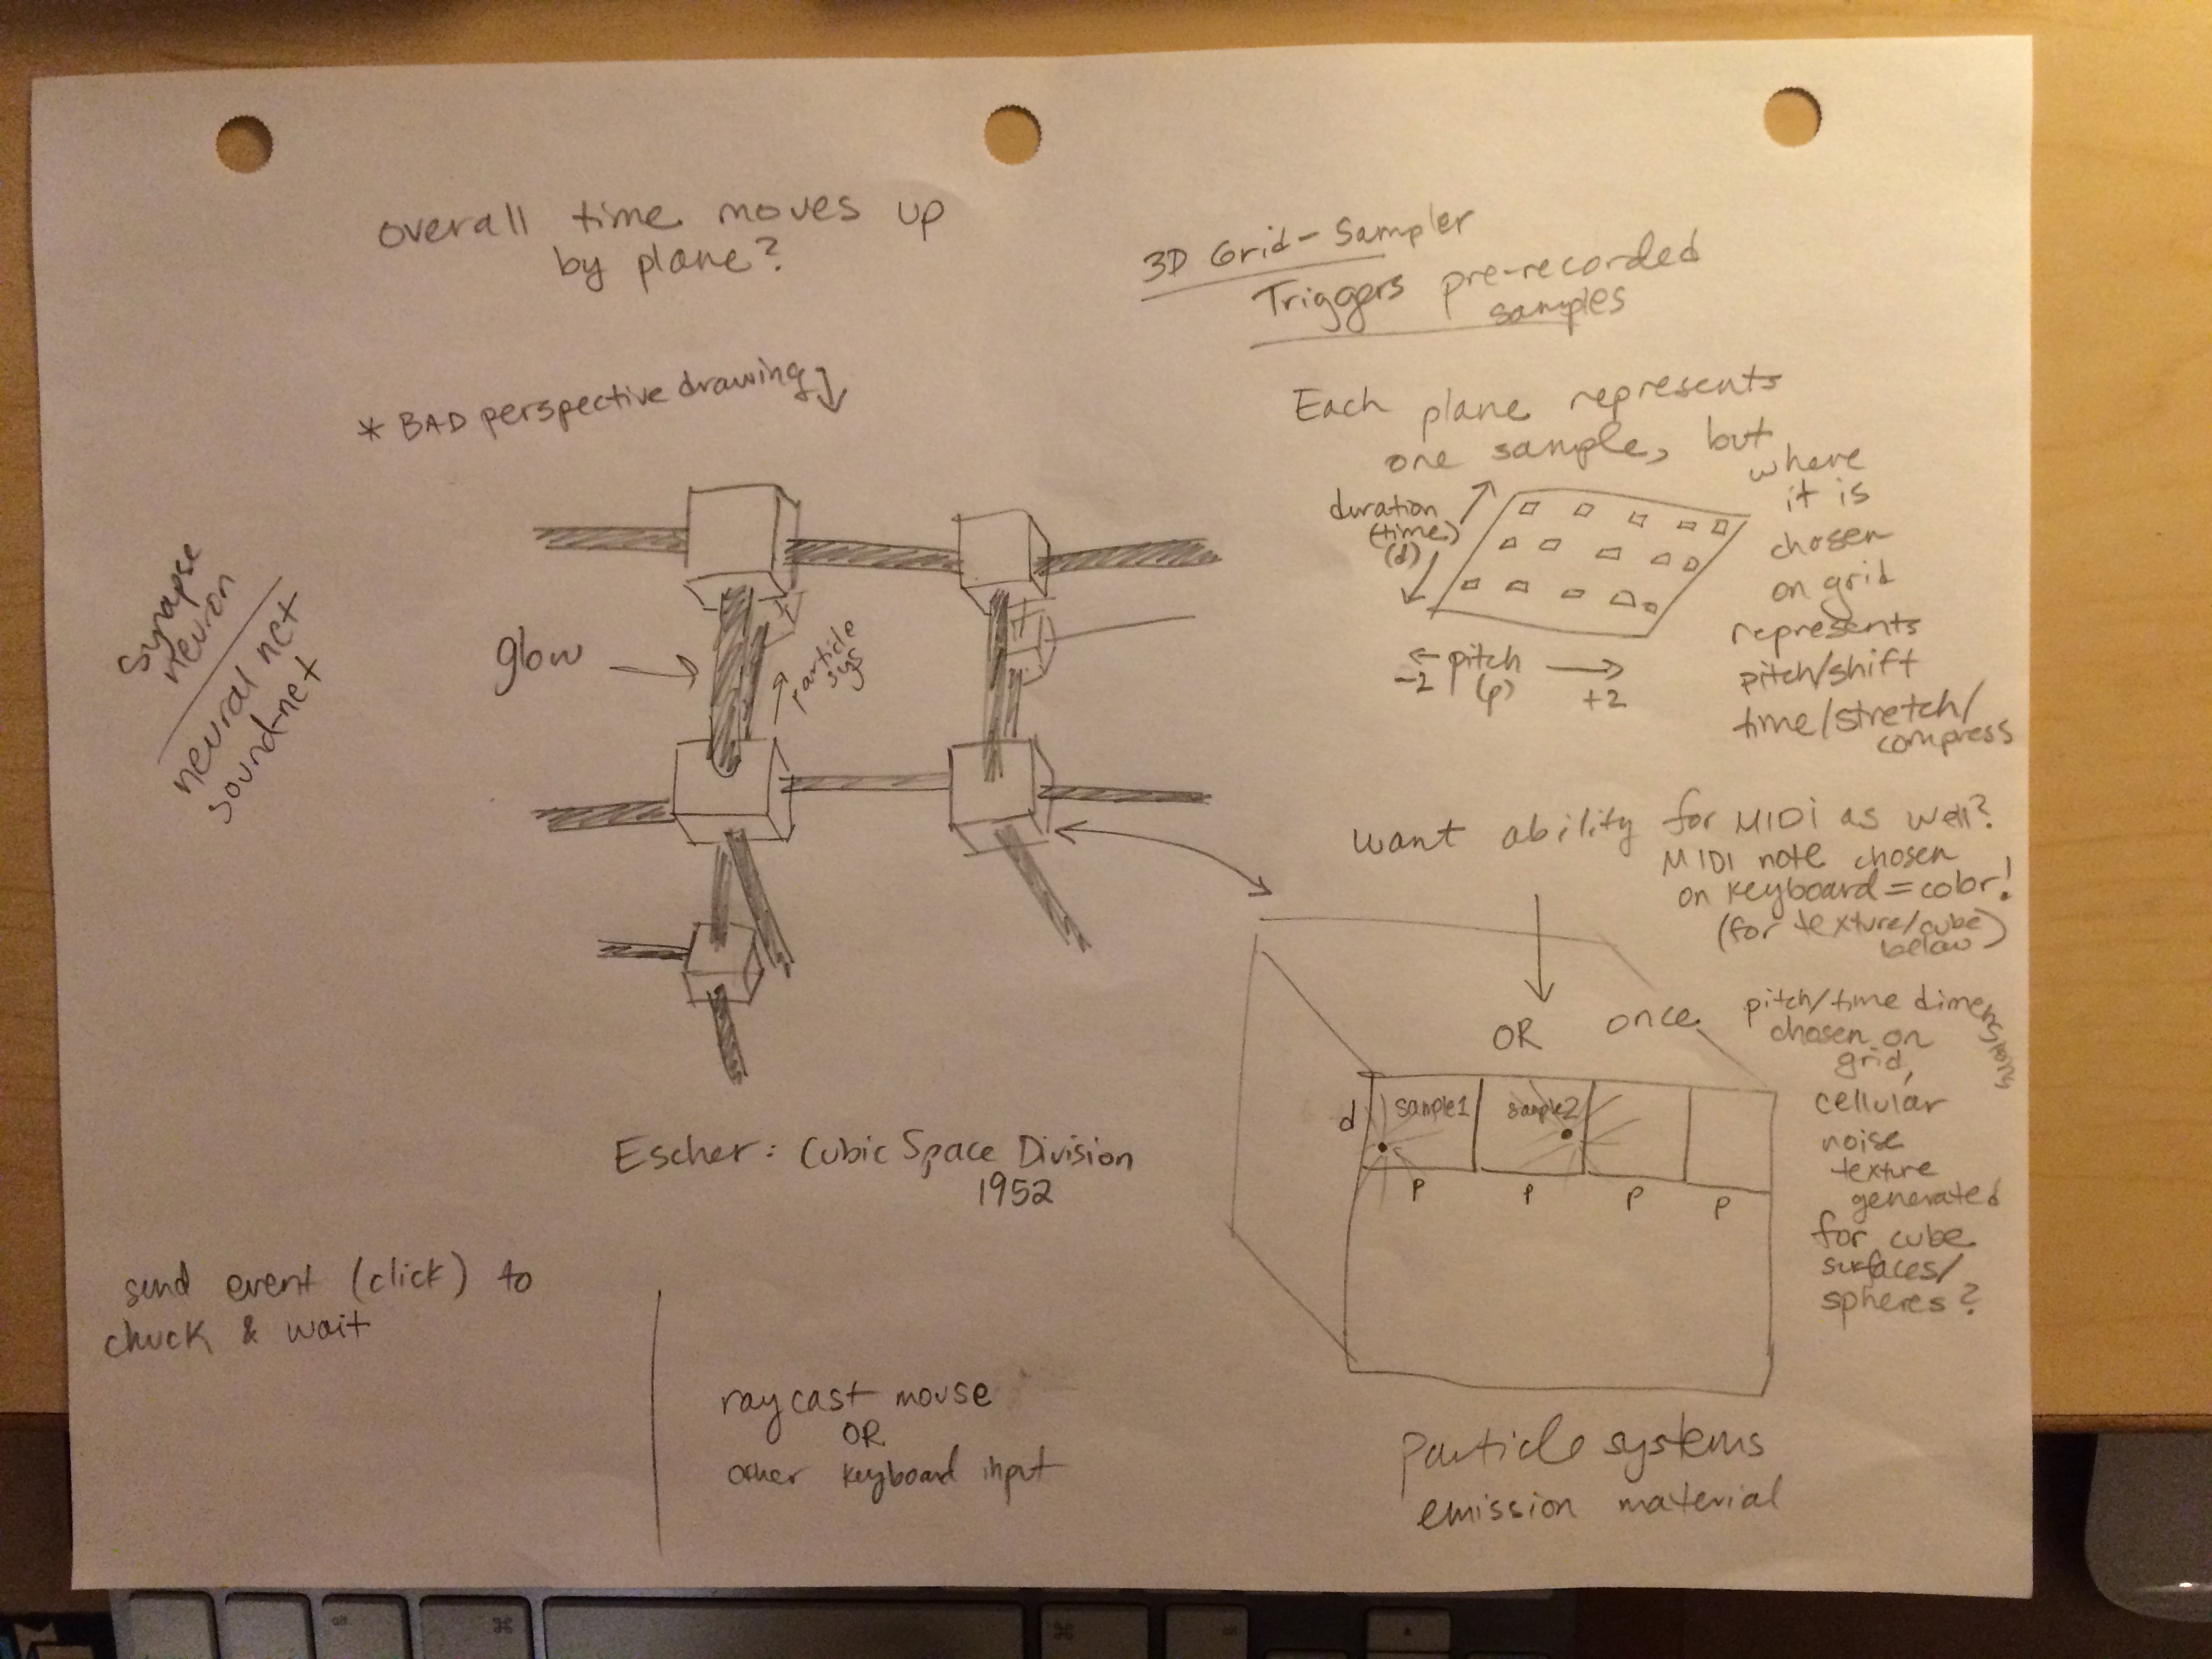 overall time moves up
by plane?
* BAD perspective drawing
Synapse
neuron
neural net
sound-net
glow
particle
sys
Escher: Cubic Space Division
1952
send event (click) to
chuck & wait
raycast mouse
OR
other keyboard input
3D Grid-Sampler
Triggers pre-recorded
samples
Each plane represents
one sample, but
where
it is
chosen
on grid
represents
pitch/shift
time/stretch/
compress
duration
(time)
(d)
← pitch →
-2 (p) +2
want ability for MIDI as well?
MIDI note chosen
on keyboard = color!
(for texture/cube
below)
OR once pitch/time dimensions
chosen on
grid,
cellular
noise
texture
generated
for cube
surfaces/
spheres?
d sample1 sample2
p p p p
Particle systems
emission material
alt ⌘ ⌘ alt